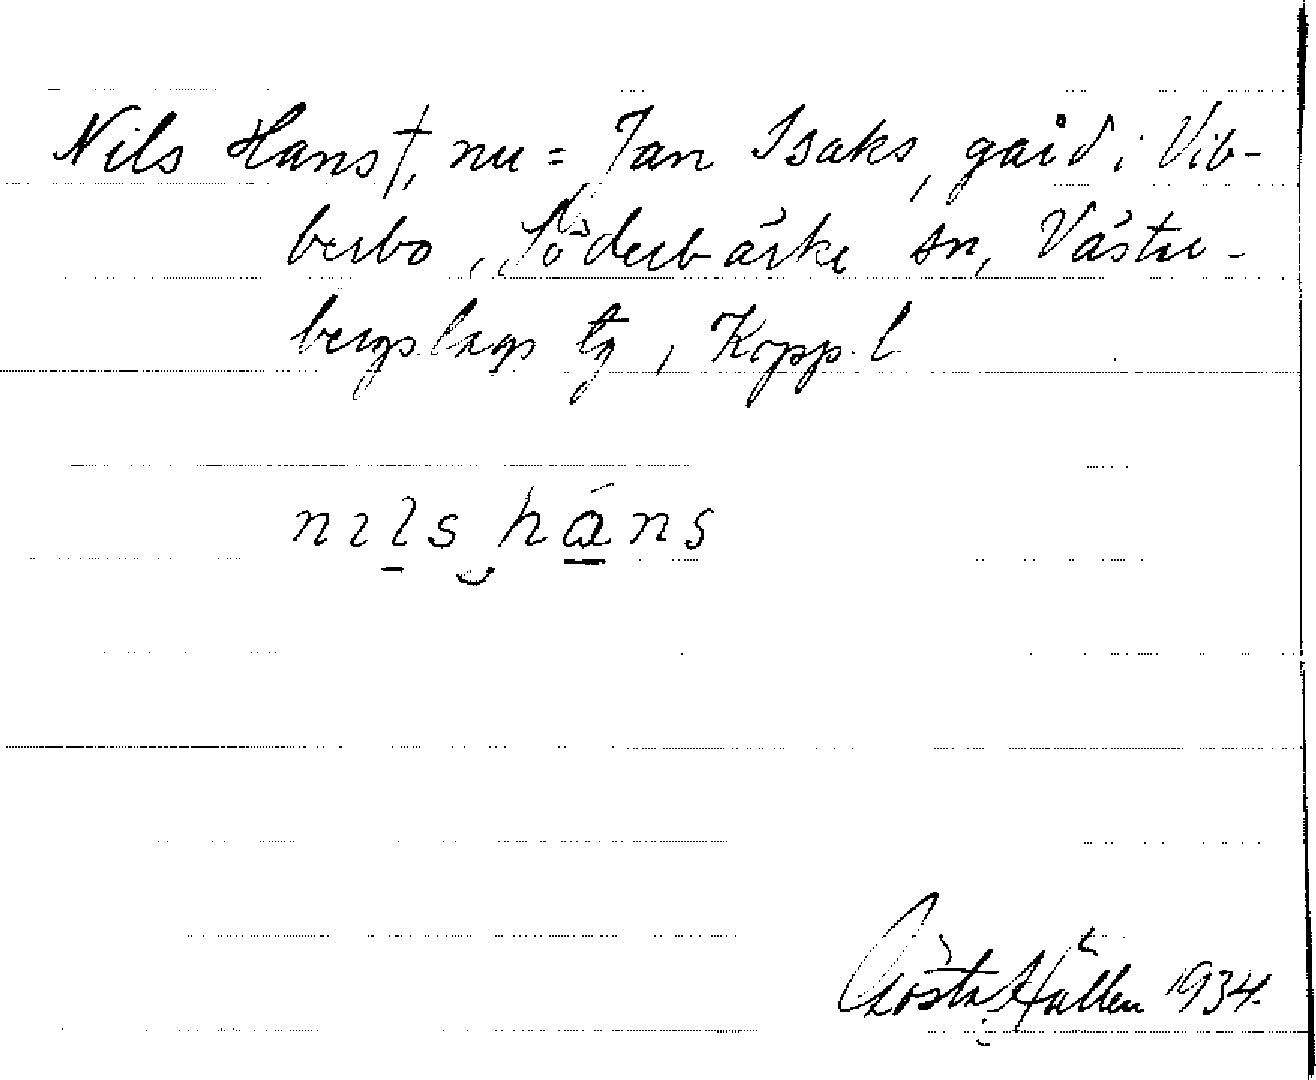 Nils Hans†, nu = Jan Isaks, gård i Vib-
berbo, Söderbärke sn, Väster-
bergslags tg, Kopp. l
nils háns
Gösta Hållen 1934.